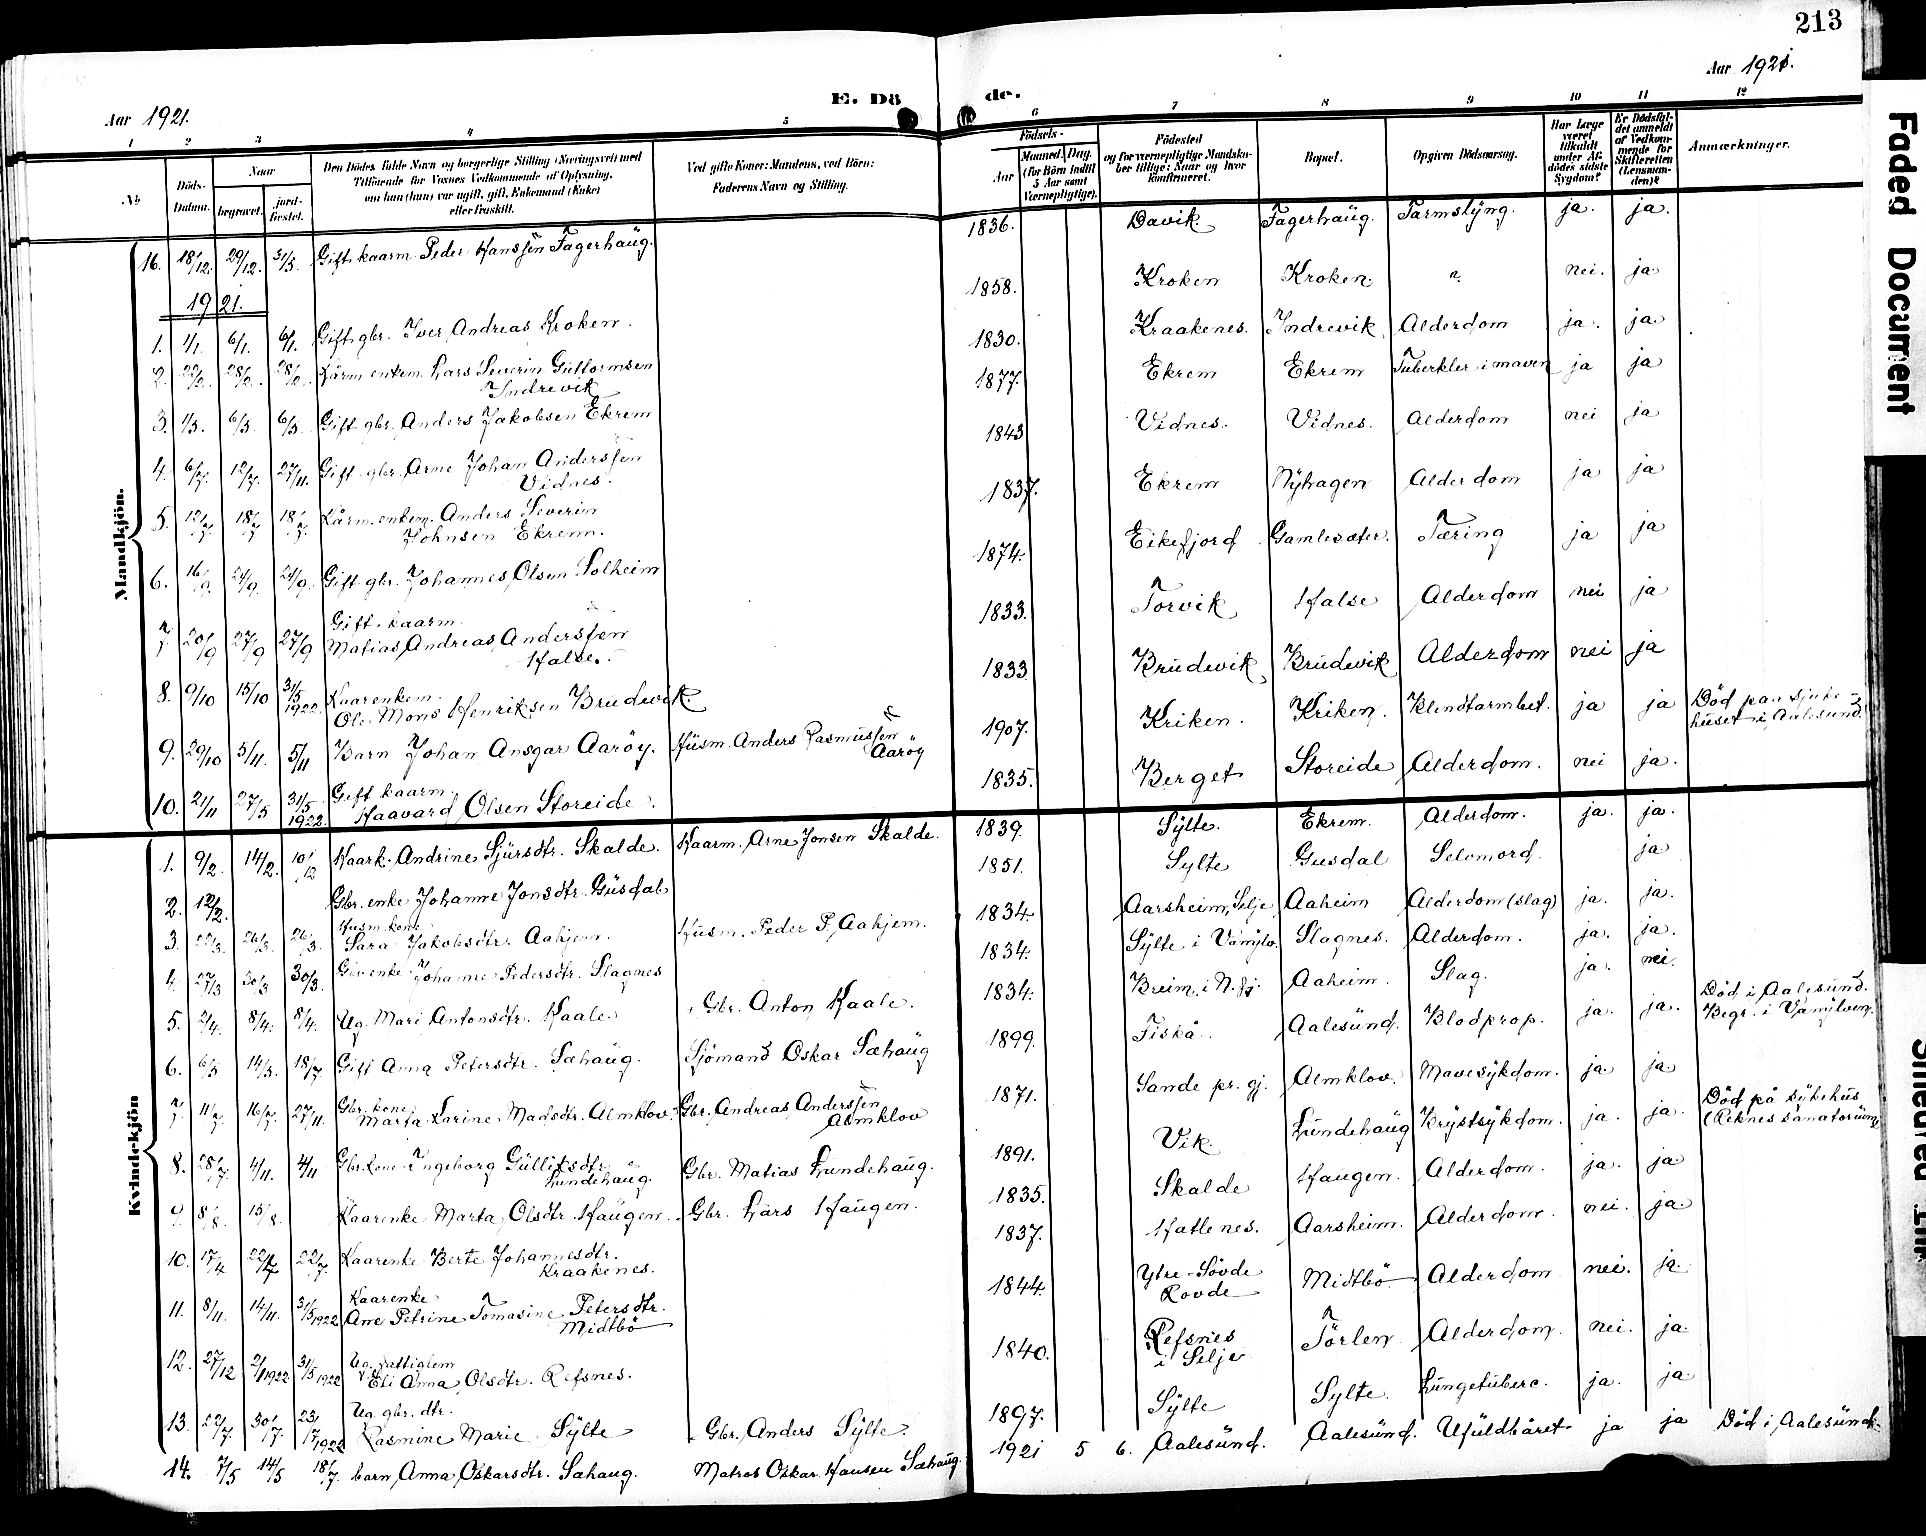 213
Aar 1921.
E. Dö de.
Aar 1921.
1 2 3 4 5 6 7 8 9 10 11 12
No
Döds-Datum.
Naar
begravet.
jord-fæstet.
Den Dödes fulde Navn og borgerlige Stilling (Næringsvei) med
Tilföiende for Voxnes Vedkommende af Oplysning,
om han (hun) var ugift, gift, Enkemand (Enke)
eller fraskilt.
Ved gifte Koner: Mandens, ved Börn:
Faderens Navn og Stilling.
Födsels-
Aar
Maaned. Dag.
(for Börn indtil
5 Aar samt
Værnepligtige).
Födested
og for værnepligtige Mandskaber tillige: Naar og hvor konfirmeret.
Bopæl.
Opgiven Dödsaarsag.
Har Læge været tilkaldt under Afdödes sidste Sygdom?
Er Dödsfaldet anmeldt af Vedkommende for Skifteretten (Lensmanden)?
Anmærkninger.
Mandkjön.
16. 18/12. 29/12. 31/5. Gift kaarm. Peder Hanssen Fagerhaug. 1836. Davik. Fagerhaug. Tarmslyng. ja. ja.
1921.
1. 1/1. 6/1. 6/1. Gift gbr. Iver Andreas Kroken. 1858. Kroken Kroken " nei. ja
2. 22/2. 28/2. 28/2. Kårm. enkem. Lars Severin Guttormsen
Indrevik 1830. Kraakenes. Indrevik Alderdom ja. ja
3. 1/3. 6/3. 6/3. Gift gbr. Anders Jakobsen Ekrem 1877. Ekrem Ekrem Tuberkler i maven ja ja
4. 6/7. 12/7. 27/11. Gift gbr. Arne Johan Anderssen
Vidnes. 1843 Vidnes. Vidnes. Alderdom nei ja
5. 12/7. 18/7 18/7. Kårm. enkem. Anders Severin
Johnsen Ekrem. 1837. Ekrem Nyhagen Alderdom ja ja
6. 16/9. 24/9. 24/9. Gift gbr. Johannes Olsen Solheim 1874. Eikefjord Gamlesæter. Tæring ja ja
7 20/9 27/9 27/9 Gift. kaarm.
Matias Andreas Anderssen
Halse. 1833. Torvik Halse Alderdom nei ja
8. 9/10 15/10 31/5 1922. Kaarenkem.
Ole Mons Henriksen Brudevik. 1833. Brudevik Brudevik Alderdom nei ja
9. 29/10 5/11. 5/11 Barn Johan Ansgar Aaröy. Husm. Anders Rasmussen
Aaröy 1907. Kriken. Kriken. Blindtarmbet. ja ja Död paa sjuke-
huset i Aalesund.
10. 21/11 27/5 31/5 1922. Gift kaarm.
Haavard Olsen Storeide. 1835. Berget Storeide Alderdom. nei ja.
Kvindekjön
1. 9/2. 14/2. 10/12 Kaark. Andrine Sjursdtr. Skalde. Kaarm. Arne Jonsen Skalde. 1839. Sylte. Ekrem. Alderdom. ja. ja.
2. 12/2. Gbr. enke Johanne Jonsdtr. Gusdal 1851. Sylte Gusdal Selvmord. ja
3. 22/3. 26/3. 26/3. Husm. kone
Sara Jakobsdtr. Aahjem. Husm. Peder P. Aahjem. 1834. Aarsheim, Selje Aaheim Alderdom (slag) ja. ja.
4. 27/3 30/3 30/3. Gbr. enke Johanne Pedersdtr. Slagnes 1834. Sylte i Vannylv. Slagnes. Alderdom. ja. ja.
5. 2/4. 8/4. 8/4. Ug. Mari Antonsdtr. Kaale. Gbr. Anton Kaale. 1834. Breim i N. fj. Aaheim. Slag. ja. nei.
6. 6/5 14/5. 18/7 Gift Anna Petersdtr. Sæhaug. Sjömand Oskar Sæhaug 1899. Fiskå. Aalesund. Blodprop. ja. ja. Död i Aalesund.
Begr. i Vannylven.
7. 11/7. 16/7. 27/11. Gbr. kone
Marta Karine Madsdtr. Almklov. Gbr. Andreas Anderssen
Almklov 1871. Sande pr. gj. Almklov. Mavesykdom. ja. ja
8. 28/7 4/11. 4/11 Gbr. kone Ingeborg Gullitsdtr.
Lundehaug. Gbr. Matias Lundehaug. 1891. Vik. Lundehaug Brystsykdom. ja. ja. Död på sykehus
(Reknes sanatorium)
9. 8/8. 15/8. Kaarenke Marta Olsdtr. Haugen. Gbr. Lars Haugen. 1835. Skalde Haugen. Alderdom. ja. ja
10. 17/4 22/7 22/7. Kaarenke Berte Johannesdtr.
Kraakenes. 1837. Hatlenes. Aarsheim. Alderdom. nei. ja
11. 8/11. 14/11. 31/5 1922 Kaarenke
Ane Petrine Tomasine Petersdtr.
Midtbö 1844. Ytre-Sövde
Rovde Midtbö. Alderdom nei. ja
12. 27/12 2/1 1922 31/5 1922 Ug. fattiglem
Eli Anna Olsdtr. Refsnes. 1840. Refsnes
i Selje Törlen Alderdom. nei. ja.
13. 22/7. 30/7. 23/7 1922 Ug. gbr. dtr.
Rasmine Marie Sylte Gbr. Anders Sylte. 1897. Sylte Sylte. Lungetuberc. ja. ja
14. 7/5 14/5 18/7. barn, Anna Oskarsdtr. Sæhaug. Matros Oskar Hansen Sæhaug. 1921 5 6. Aalesund. Aalesund. Ufuldbåret ja ja Död i Aalesund.
Faded Document